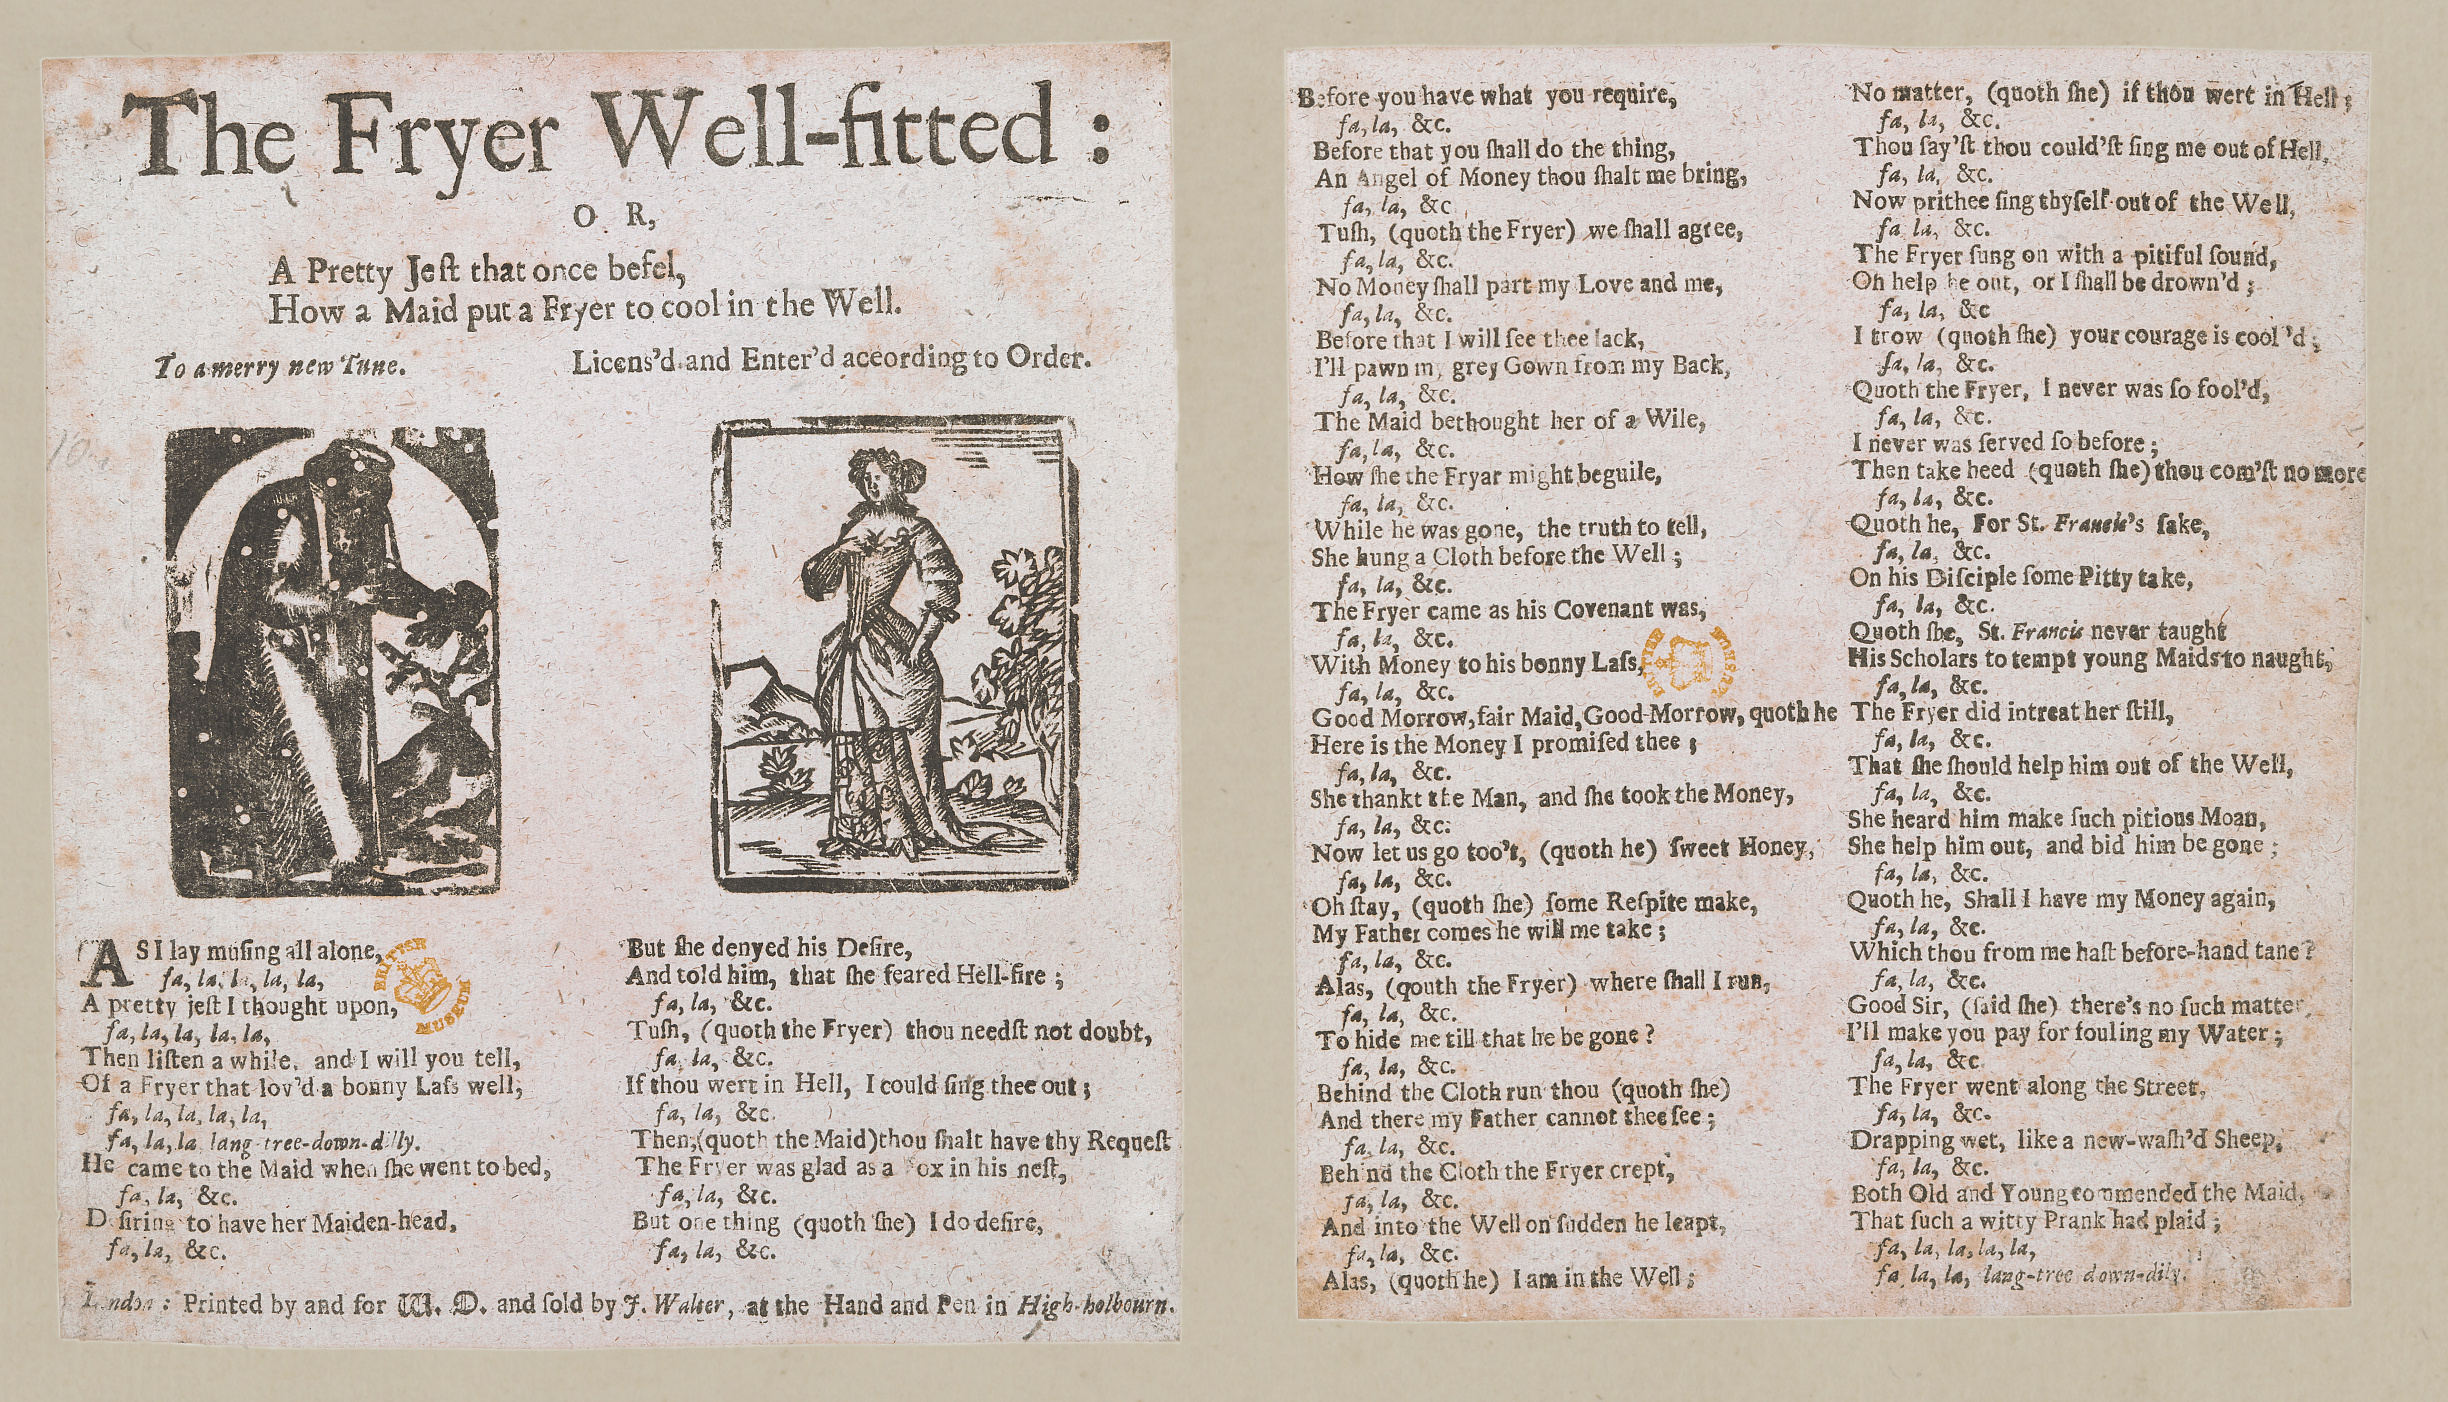 The Fryer Well-fitted:
OR,
A Pretty Jeſt that once befel,
How a Maid put a Fryer to cool in the Well.
To a merry new Tune.
Licens'd and Enter'd aceording to Order.
AS I lay muſing all alone,
fa, la, la, la, la,
A pretty jeſt I thought upon,
fa, la, la, la, la,
Then liſten a while, and I will you tell,
Of a Fryer that lov'd a bonny Laſs well,
fa, la, la, la, la,
fa, la, la lang-tree-down-dilly.
He came to the Maid when ſhe went to bed,
fa, la, &c.
Deſiring to have her Maiden-head,
fa, la, &c.
But ſhe denyed his Deſire,
And told him, that ſhe feared Hell-fire;
fa, la, &c.
Tuſh, (quoth the Fryer) thou needſt not doubt,
fa, la, &c.
If thou wert in Hell, I could ſing thee out;
fa, la, &c.
Then, (quoth the Maid) thou ſhalt have thy Requeſt
The Fryer was glad as a Fox in his neſt,
fa, la, &c.
But one thing (quoth ſhe) I do deſire,
fa, la, &c.
London: Printed by and for W. O. and ſold by J. Walter, at the Hand and Pen in High-holbourn.
BRITISH MUSEUM
Before you have what you require,
fa, la, &c.
Before that you ſhall do the thing,
An Angel of Money thou ſhalt me bring,
fa, la, &c
Tuſh, (quoth the Fryer) we ſhall agree,
fa, la, &c.
No Money ſhall part my Love and me,
fa, la, &c.
Before that I will ſee thee lack,
I'll pawn my grey Gown from my Back,
fa, la, &c.
The Maid bethought her of a Wile,
fa, la, &c.
How ſhe the Fryar might beguile,
fa, la, &c.
While he was gone, the truth to tell,
She hung a Cloth before the Well;
fa, la, &c.
The Fryer came as his Covenant was,
fa, la, &c.
With Money to his bonny Laſs,
fa, la, &c.
Good Morrow, fair Maid, Good-Morrow, quoth he
Here is the Money I promiſed thee;
fa, la, &c.
She thankt the Man, and ſhe took the Money,
fa, la, &c.
Now let us go too't, (quoth he) ſweet Honey,
fa, la, &c.
Oh ſtay, (quoth ſhe) ſome Reſpite make,
My Father comes he will me take;
fa, la, &c.
Alas, (qouth the Fryer) where ſhall I run,
fa, la, &c.
To hide me till that he be gone?
fa, la, &c.
Behind the Cloth run thou (quoth ſhe)
And there my Father cannot thee ſee;
fa, la, &c.
Behind the Cloth the Fryer crept,
fa, la, &c.
And into the Well on ſudden he leapt,
fa, la, &c.
Alas, (quoth he) I am in the Well;
BRITISH MUSEUM
No matter, (quoth ſhe) if thou wert in Hell;
fa, la, &c.
Thou ſay'ſt thou could'ſt ſing me out of Hell,
fa, la, &c.
Now prithee ſing thyſelf out of the Well,
fa la, &c.
The Fryer ſung on with a pitiful ſound,
Oh help me out, or I ſhall be drown'd;
fa, la, &c
I trow (quoth ſhe) your courage is cool'd;
fa, la, &c.
Quoth the Fryer, I never was ſo fool'd,
fa, la, &c.
I never was ſerved ſo before;
Then take heed (quoth ſhe) thou com'ſt no more
fa, la, &c.
Quoth he, For St. Francis's ſake,
fa, la, &c.
On his Diſciple ſome Pitty take,
fa, la, &c.
Quoth ſhe, St. Francis never taught
His Scholars to tempt young Maids to naught,
fa, la, &c.
The Fryer did intreat her ſtill,
fa, la, &c.
That ſhe ſhould help him out of the Well,
fa, la, &c.
She heard him make ſuch pitious Moan,
She help him out, and bid him be gone;
fa, la, &c.
Quoth he, Shall I have my Money again,
fa, la, &c.
Which thou from me haſt before-hand tane?
fa, la, &c.
Good Sir, (ſaid ſhe) there's no ſuch matter,
I'll make you pay for fouling my Water;
fa, la, &c
The Fryer went along the Street,
fa, la, &c.
Drapping wet, like a new-waſh'd Sheep,
fa, la, &c.
Both Old and Young commended the Maid,
That ſuch a witty Prank had plaid;
fa, la, la, la, la,
fa, la, la, lang-tree down-dily.